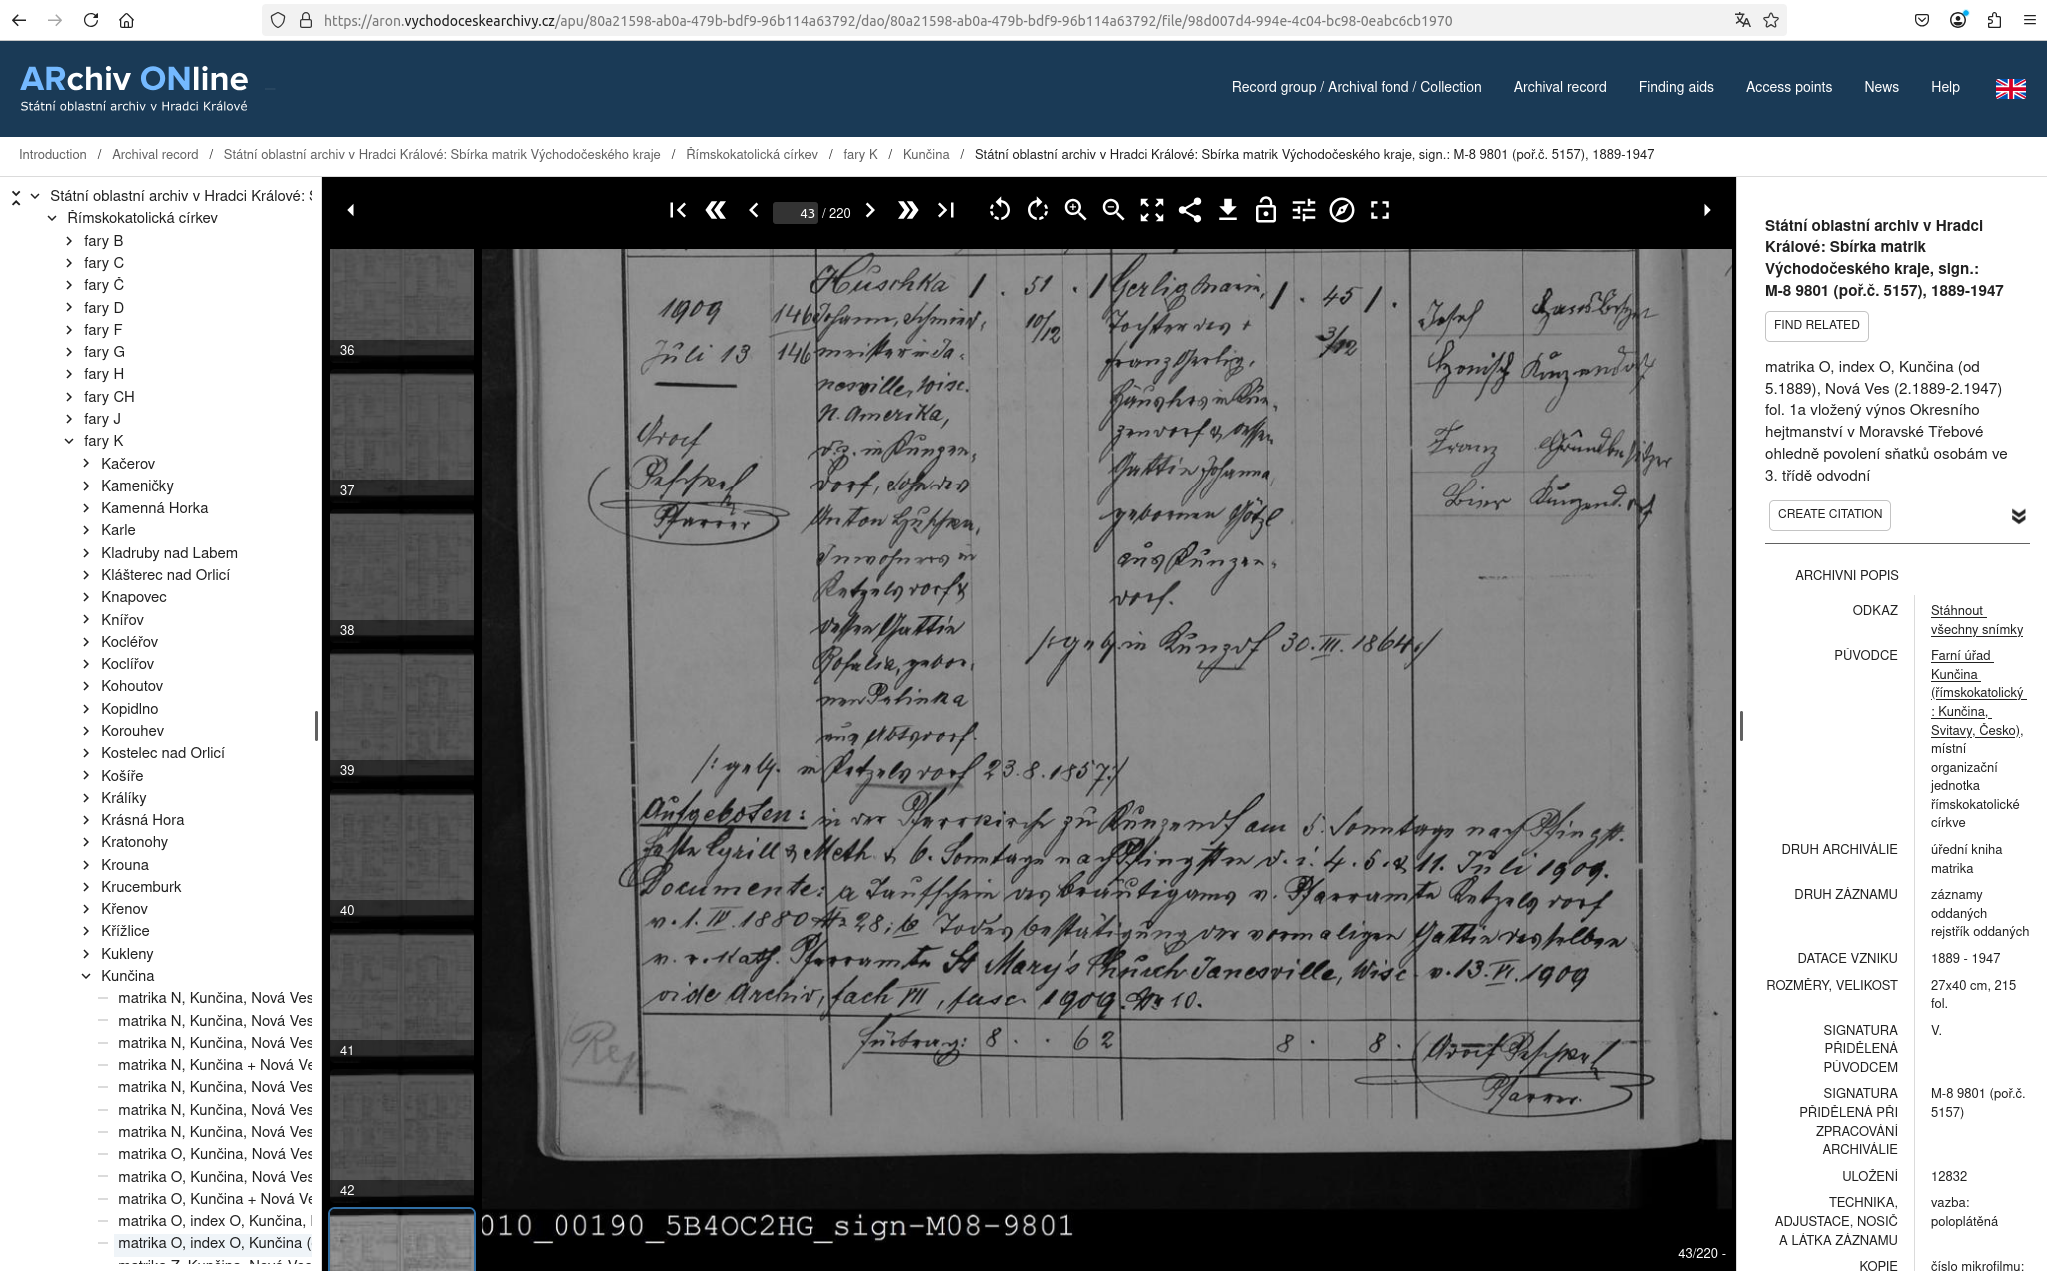 https://aron.vychodoceskearchivy.cz/apu/80a21598-ab0a-479b-bdf9-96b114a63792/dao/80a21598-ab0a-479b-bdf9-96b114a63792/file/98d007d4-994e-4c04-bc98-0eabc6cb1970
ARchiv ONline
Státní oblastní archiv v Hradci Králové
Record group / Archival fond / Collection
Archival record
Finding aids
Access points
News
Help
Introduction / Archival record / Státní oblastní archiv v Hradci Králové: Sbírka matrik Východočeského kraje / Římskokatolická církev / fary K / Kunčina / Státní oblastní archiv v Hradci Králové: Sbírka matrik Východočeského kraje, sign.: M-8 9801 (poř.č. 5157), 1889-1947
Státní oblastní archiv v Hradci Králové: S
Římskokatolická církev
fary B
fary C
fary Č
fary D
fary F
fary G
fary H
fary CH
fary J
fary K
Kačerov
Kameničky
Kamenná Horka
Karle
Kladruby nad Labem
Klášterec nad Orlicí
Knapovec
Knířov
Kocléřov
Koclířov
Kohoutov
Kopidlno
Korouhev
Kostelec nad Orlicí
Košíře
Králíky
Krásná Hora
Kratonohy
Krouna
Krucemburk
Křenov
Křížlice
Kukleny
Kunčina
matrika N, Kunčina, Nová Ves
matrika N, Kunčina, Nová Ves
matrika N, Kunčina, Nová Ves
matrika N, Kunčina + Nová Ve
matrika N, Kunčina, Nová Ves
matrika N, Kunčina, Nová Ves
matrika N, Kunčina, Nová Ves
matrika O, Kunčina, Nová Ves
matrika O, Kunčina, Nová Ves
matrika O, Kunčina + Nová Ve
matrika O, index O, Kunčina,
matrika O, index O, Kunčina (
43 / 220
36
37
38
39
40
41
42
1909
Juli 13
Adolf
Peschel
Pfarrer
146
146
Huschka
Johann, Schmied-
meister in Ja-
nesville, Wisc.
N. Amerika,
d.z. in Kunzen-
dorf, Sohn des
Anton Huschka,
Inwohners in
Ketzelsdorf &
dessen Gattin
Rosalia, gebor-
nen Palinka
aus Abtsdorf.
/: geb. in Ketzelsdorf 23.8.1857 :/
1 . 51 . 1
10/12
Gerlig Maria,
Tochter des +
Franz Gerlig,
Häuslers in Kun-
zendorf & dessen
Gattin Johanna,
gebornen Götzl
aus Kunzen-
dorf.
/: geb. in Kunzdf 30.III.1864 :/
1 . 45 1 .
3/12
Josef
Hausbesitzer
Kunzendorf
Franz Grundbesitzer
Bier Kunzendorf
Aufgeboten: in der Pfarrkirche zu Kunzendf am 5. Sonntage nach Pfingst.
Feste Cyrill & Meth. & 6. Sonntage nach Pfingsten d. i. 4. 5. & 11. Juli 1909.
Documente: a Taufschein des Bräutigams v. Pfarramte Ketzelsdorf
v. 1. IV. 1880 № 28; b Todesbestätigung der vormaligen Gattin desselben
v. r. kath. Pfarramte St Mary's Church Janesville, Wisc. v. 13. VI. 1909
vide Archiv, fach VII, fasc. 1909. Nr 10.
Fürtrag: 8 . . 6 2 8 . 8 .
Adolf Peschel
Pfarrer.
Rep
010_00190_5B4OC2HG_sign-M08-9801
43/220 -
Státní oblastní archiv v Hradci
Králové: Sbírka matrik
Východočeského kraje, sign.:
M-8 9801 (poř.č. 5157), 1889-1947
FIND RELATED
matrika O, index O, Kunčina (od
5.1889), Nová Ves (2.1889-2.1947)
fol. 1a vložený výnos Okresního
hejtmanství v Moravské Třebové
ohledně povolení sňatků osobám ve
3. třídě odvodní
CREATE CITATION
ARCHIVNI POPIS
ODKAZ
Stáhnout
všechny snímky
PŮVODCE
Farní úřad
Kunčina
(římskokatolický
: Kunčina,
Svitavy, Česko),
místní
organizační
jednotka
římskokatolické
církve
DRUH ARCHIVÁLIE
úřední kniha
matrika
DRUH ZÁZNAMU
záznamy
oddaných
rejstřík oddaných
DATACE VZNIKU
1889 - 1947
ROZMĚRY, VELIKOST
27x40 cm, 215
fol.
SIGNATURA
PŘIDĚLENÁ
PŮVODCEM
V.
SIGNATURA
PŘIDĚLENÁ PŘI
ZPRACOVÁNÍ
ARCHIVÁLIE
M-8 9801 (poř.č.
5157)
ULOŽENÍ
12832
TECHNIKA,
ADJUSTACE, NOSIČ
A LÁTKA ZÁZNAMU
vazba:
poloplátěná
KOPIE
číslo mikrofilmu: